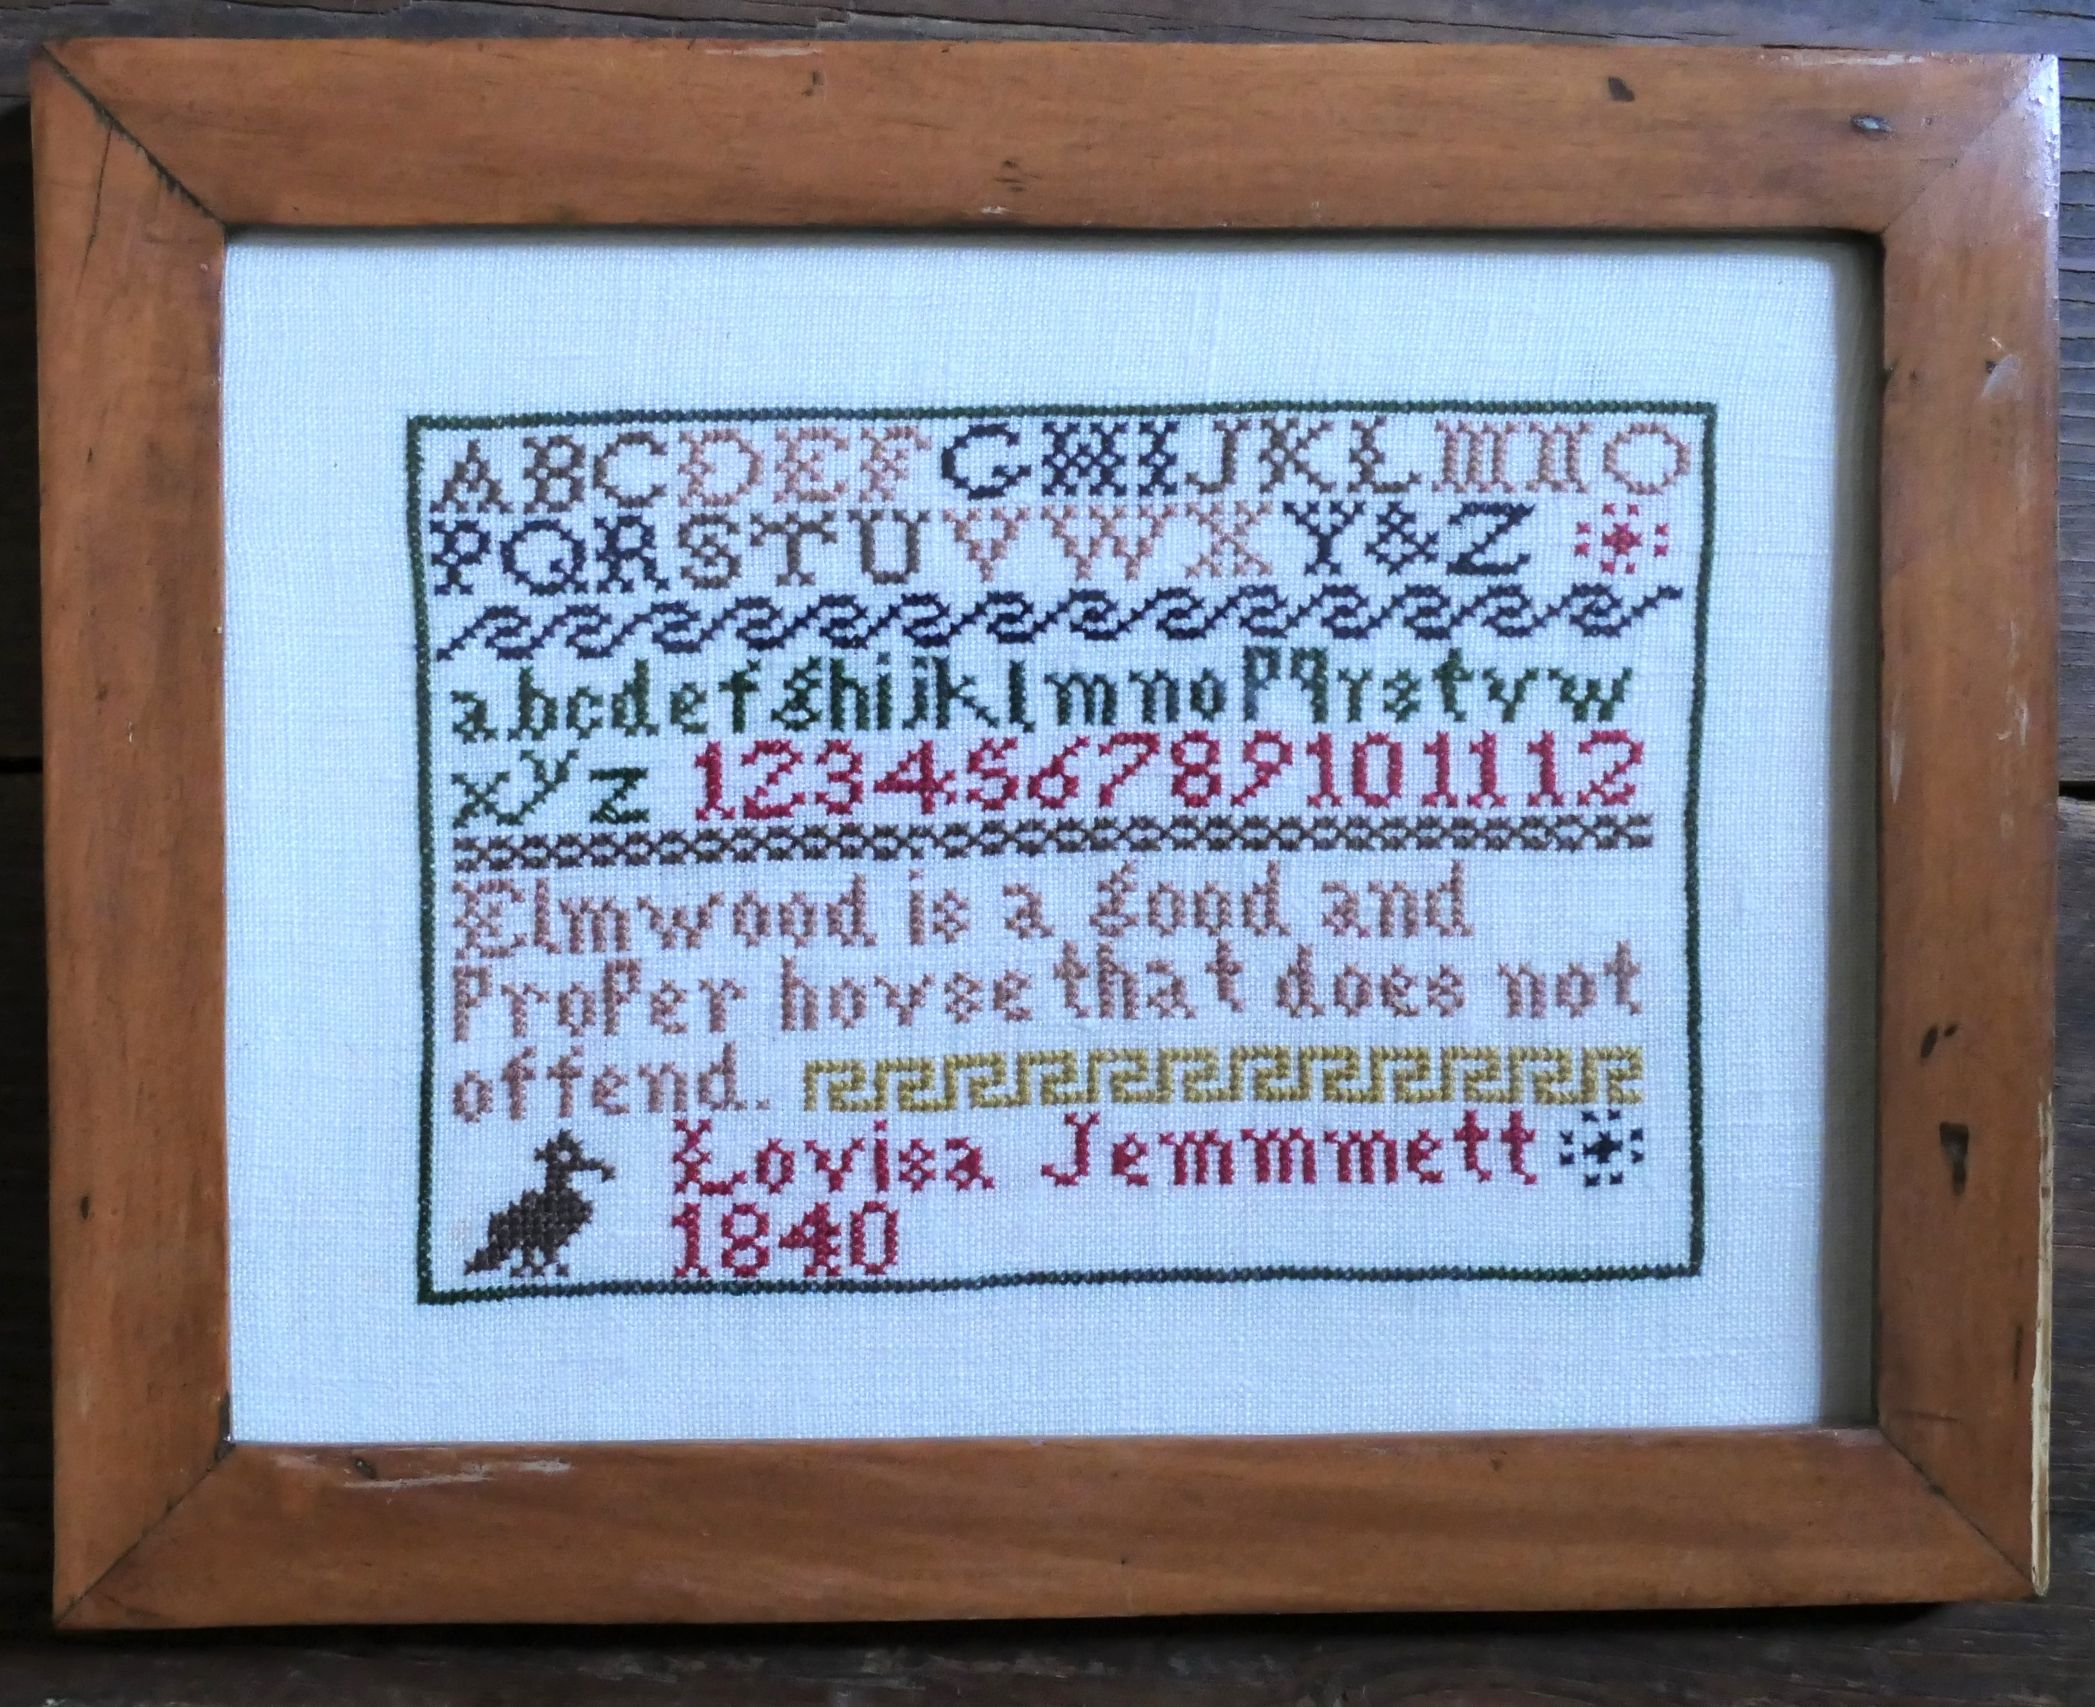 ABCDEFGHIJKLMNO
PQRSTUVWXY&Z
abcdefghijklmnopqrstvw
xyz 123456789101112
Elmwood is a good and
Proper hovse that does not
offend.
Lovisa Jemmmett
1840